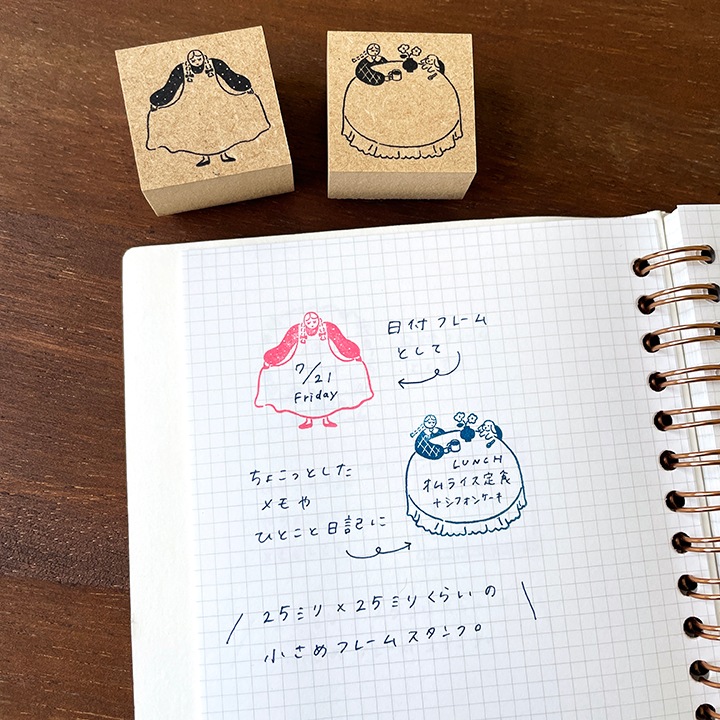 日付フレーム
として
7/21
Friday
ちょこっとした
メモや
ひとこと日記に
LUNCH
オムライス定食
+シフォンケーキ
25ミリ×25ミリくらいの
小さめフレームスタンプ。